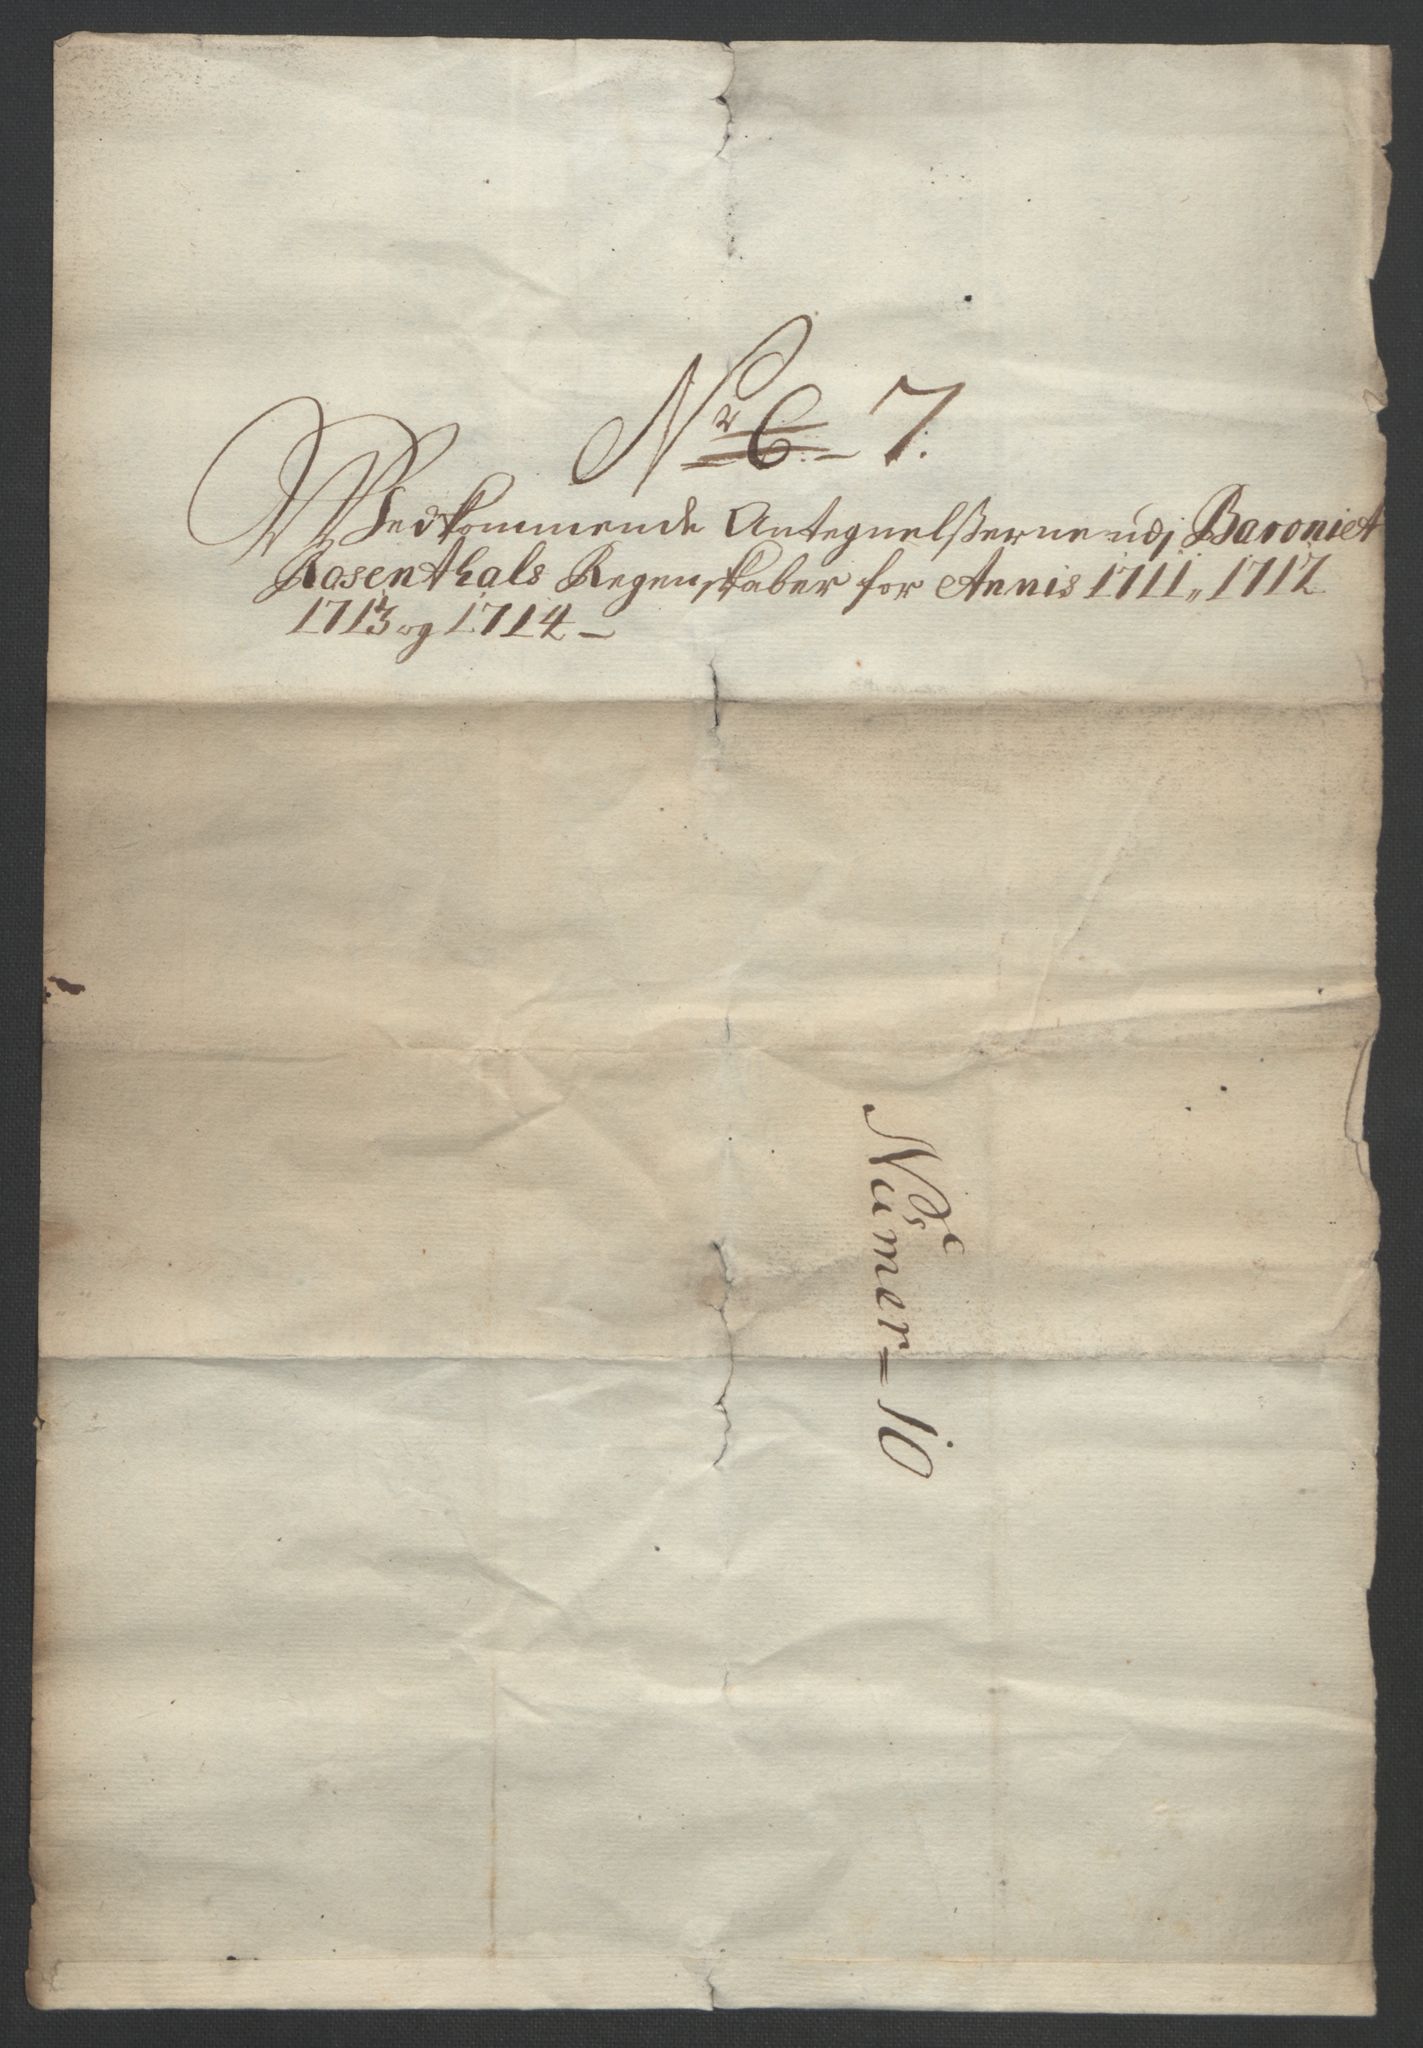 Nr 6. 7.
Vedkommende Antegnelsserne udj Baroniet
Rosenthals Regenskaber for Annis 1711, 1712
1713 og 1714 –
Numer = 10